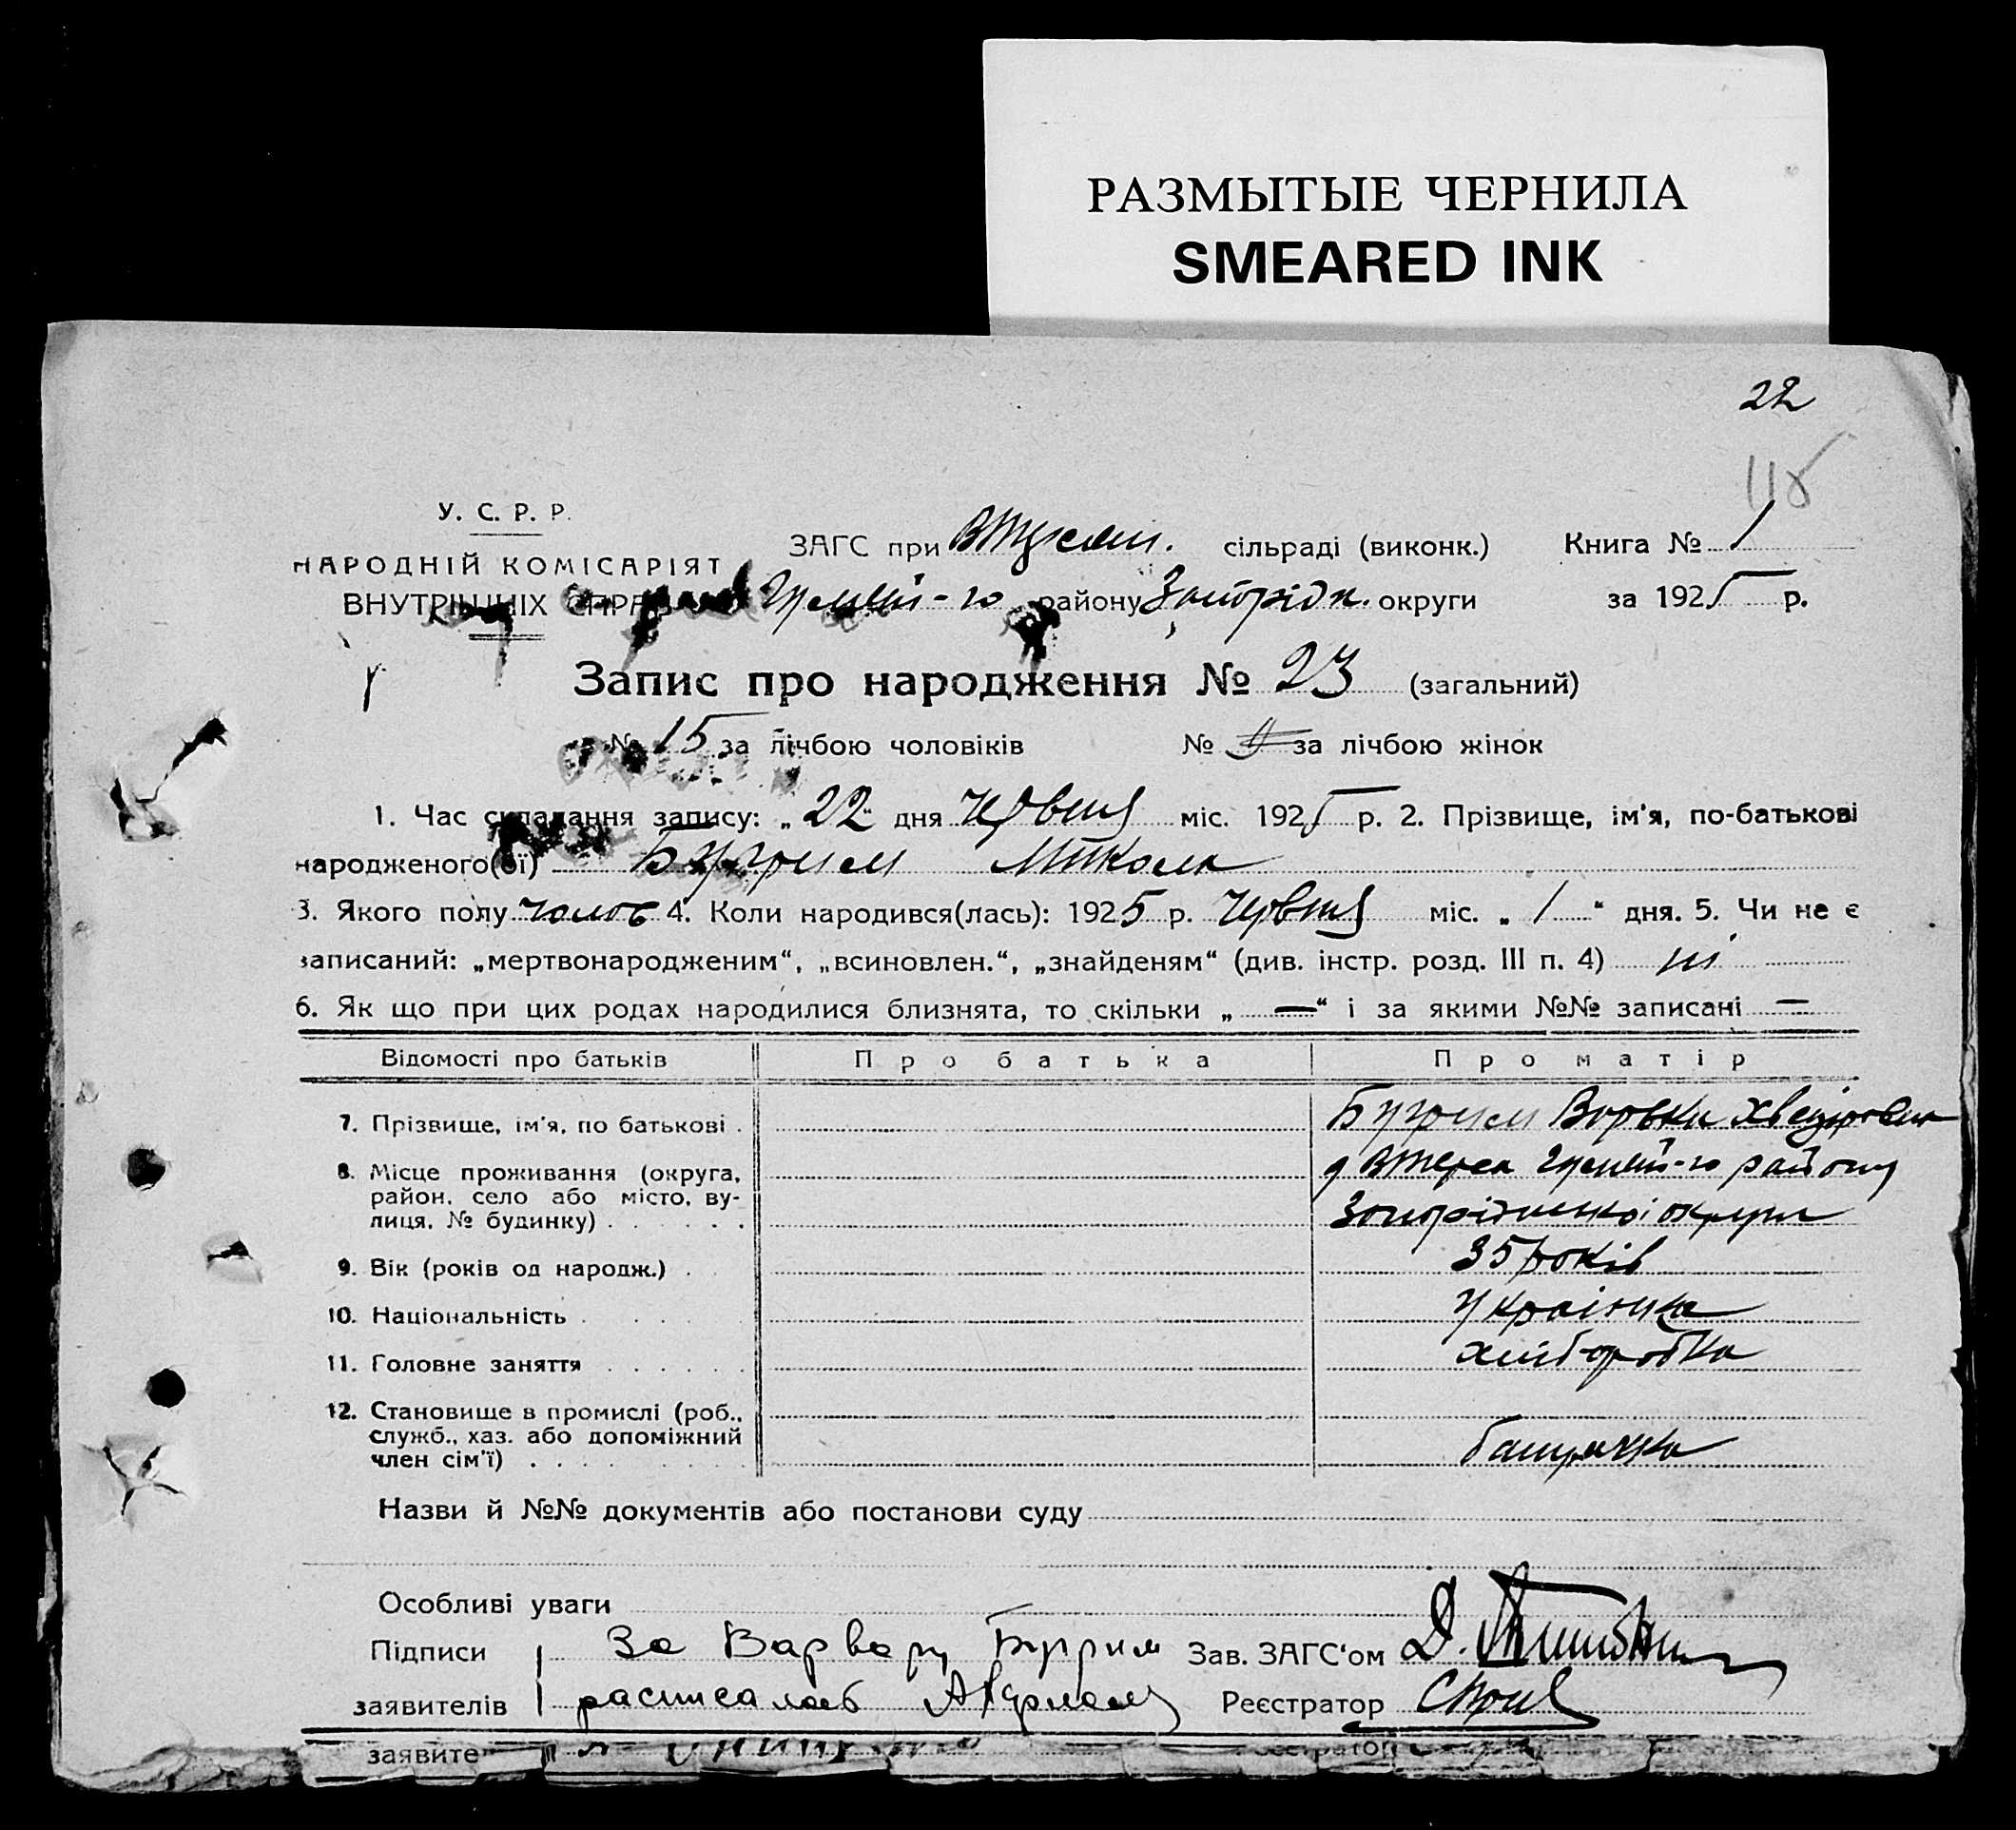 РАЗМЫТЫЕ ЧЕРНИЛА
SMEARED INK
22
У. С. Р. Р.
НАРОДНІЙ КОМІСАРІЯТ
ВНУТРІШНІХ СПРАВ
ЗАГС при сільраді (виконк.) Книга № 1
району Запоріж. округи за 1925 р.
Запис про народження № 23 (загальний)
№ 15 за лічбою чоловіків № за лічбою жінок
1. Час складання запису: „22" дня червня міс. 1925 р. 2. Прізвище, ім'я, по-батькові
народженого(ої) Бугрим Микола
3. Якого полу чолов 4. Коли народився(лась): 1925 р. червня міс. „ 1 " дня. 5. Чи не є
записаний: „мертвонародженим", „всиновлен.", „знайденям" (див. інстр. розд. III п. 4) ні
6. Як що при цих родах народилися близнята, то скільки „ — " і за якими №№ записані —
Відомості про батьків Про батька Про матір
7. Прізвище, ім'я, по батькові . Бугрим
8. Місце проживання (округа, район, село або місто, ву-
лиця, № будинку) . . . . . . району
округи
9. Вік (років од народж.) . 35 років
10. Національність . . . . Українка
11. Головне заняття . . . . . . хліборобка
12. Становище в промислі (роб.,
служб., хаз. або допоміжний
член сім'ї) . . . . . . . . . батрачка
Назви й №№ документів або постанови суду
Особливі уваги
Підписи За Варвару Бугрим Зав. ЗАГС'ом Д.
заявителів расписалась Реєстратор
заявите